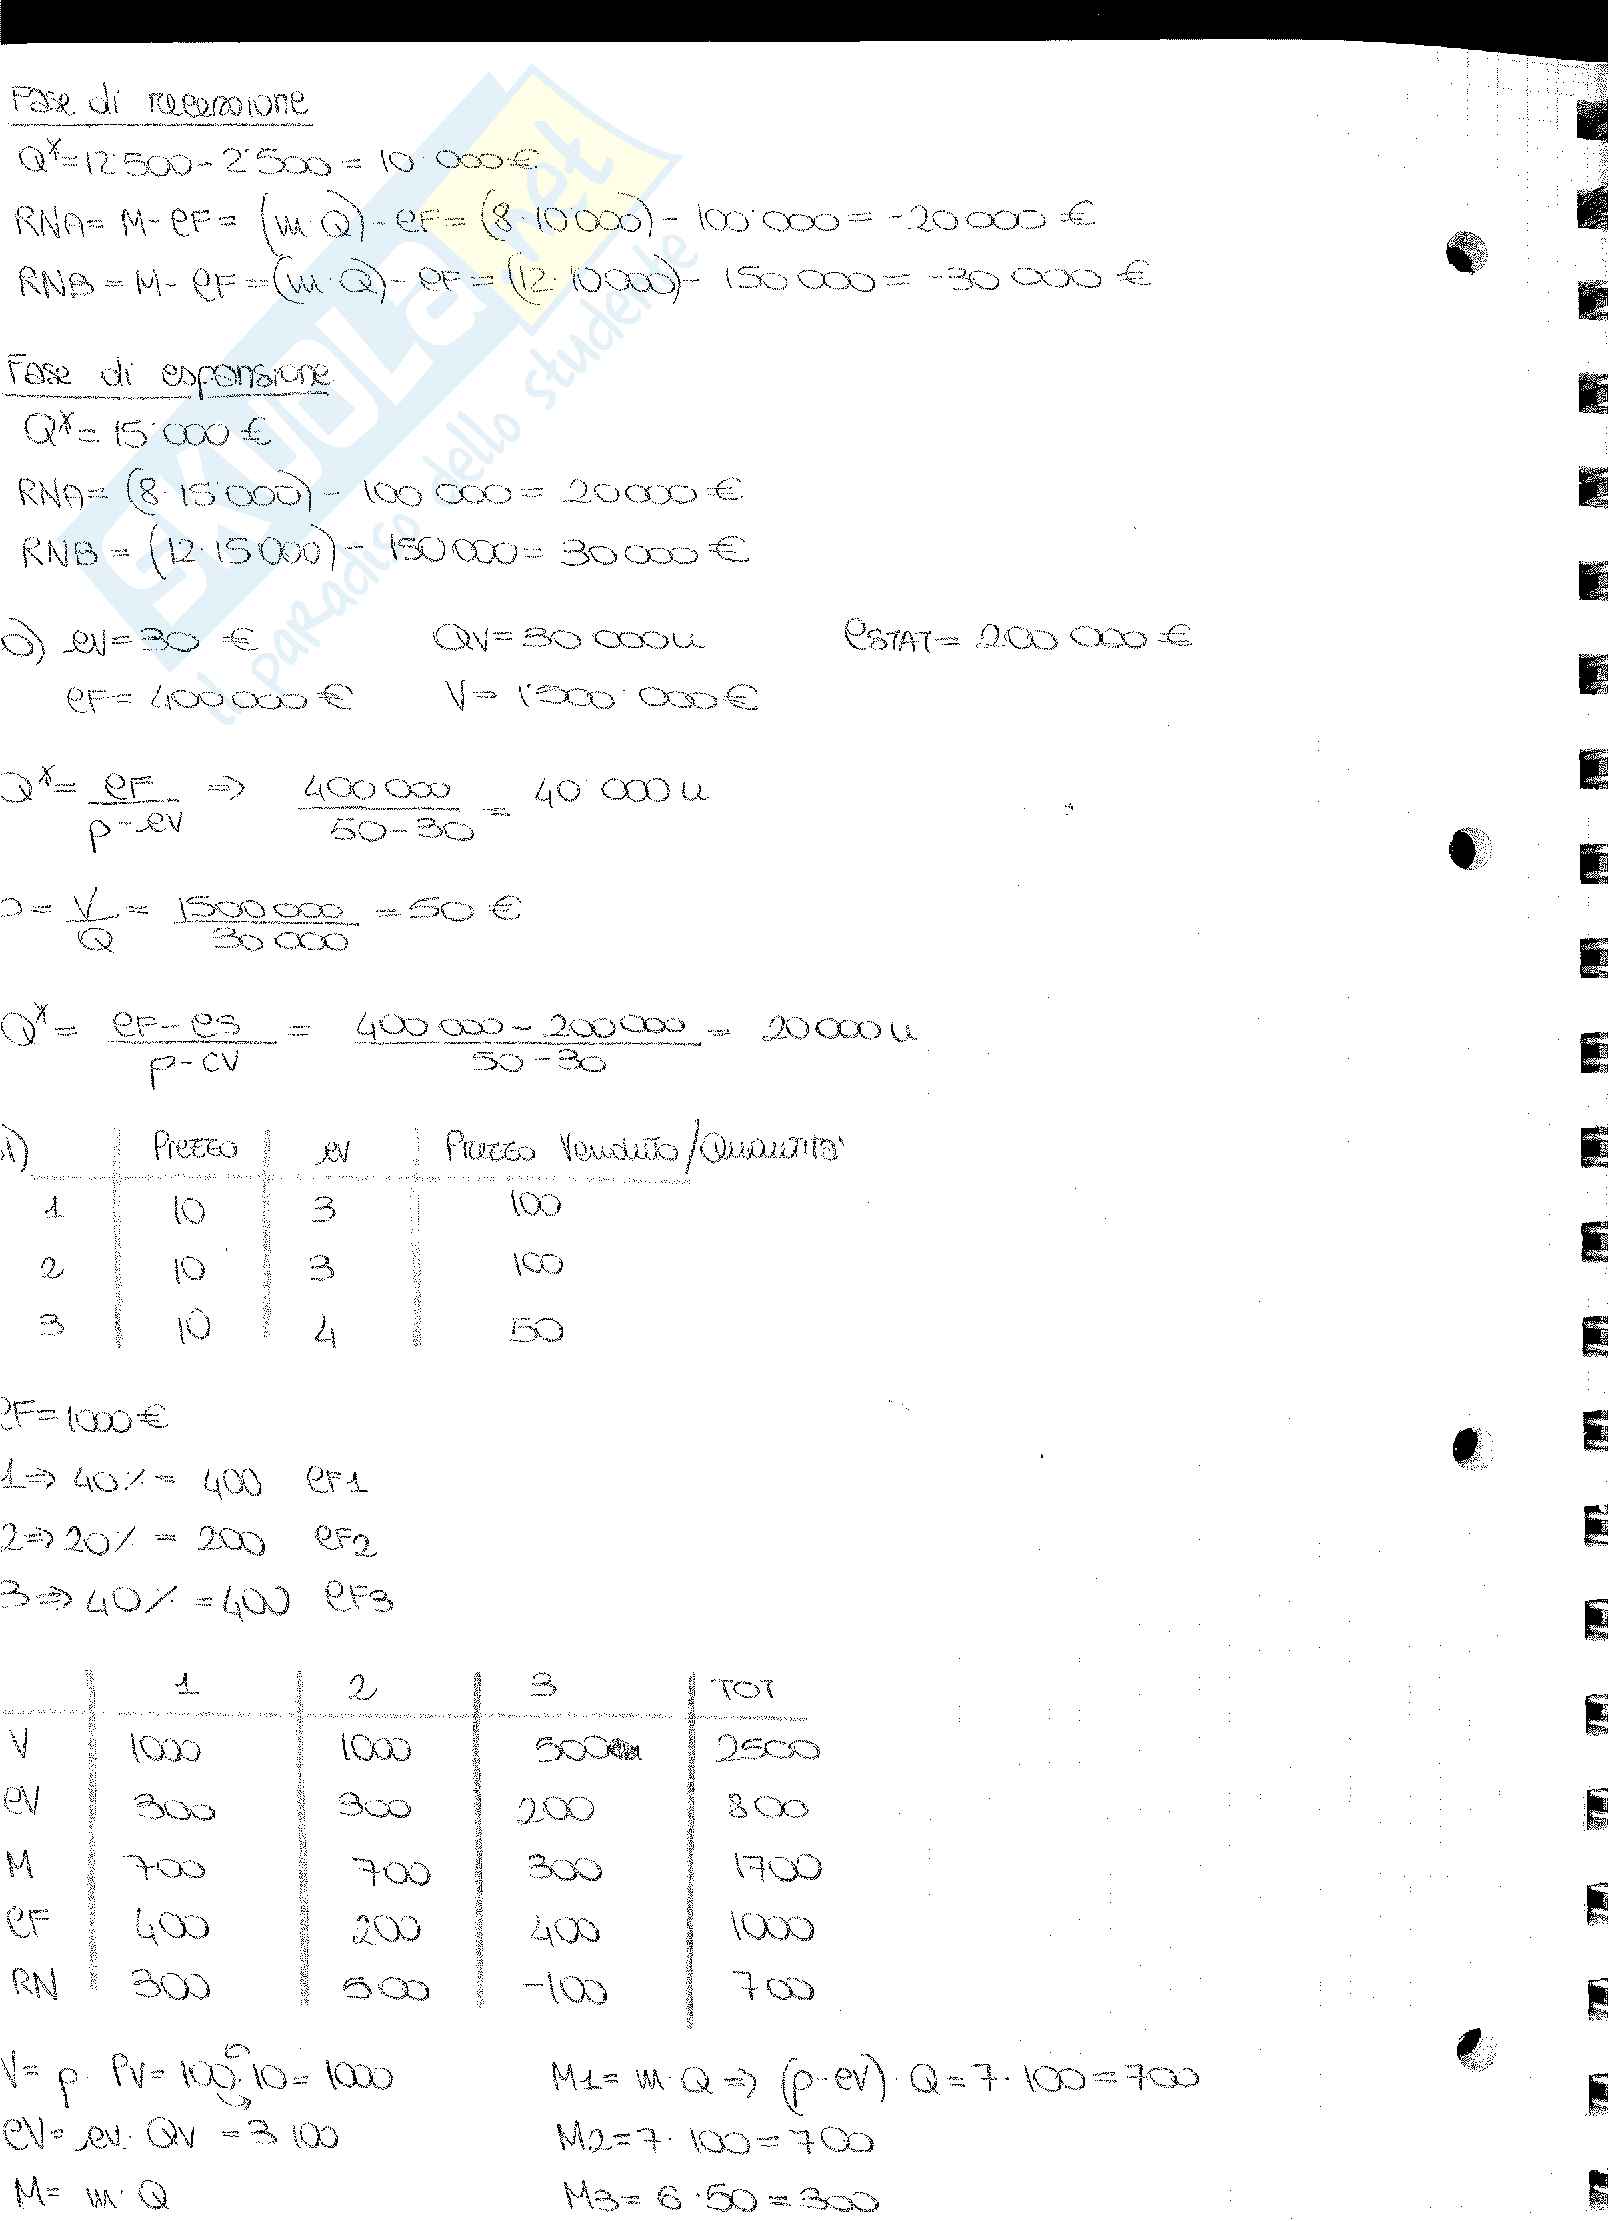 Fase di recessione
Q*= 12'500 - 2'500 = 10'000 €
RNA = M - CF = (m·Q) - CF = (8·10'000) - 100'000 = -20 000 €
RNB = M - CF = (m·Q) - CF = (12·10000) - 150 000 = -30 000 €
Fase di espansione
Q* = 15'000 €
RNA = (8·15'000) - 100 000 = 20000 €
RNB = (12·15000) - 150000 = 30000 €
cv = 30 € QV = 30 000 u CSTAT = 200 000 €
CF = 400000 € V = 1'500'000 €
Q* = CF / p - cv ⇒ 400 000 / 50 - 30 = 40'000 u
p = V / Q = 1500 000 / 30 000 = 50 €
Q* = CF - CS / p - CV = 400 000 - 200 000 / 50 - 30 = 20000 u
Prezzo cv Prezzo Venduto/Quantità
1 10 3 100
2 10 3 100
3 10 4 50
CF = 1000 €
1 ⇒ 40% = 400 CF1
2 ⇒ 20% = 200 CF2
3 ⇒ 40% = 400 CF3
1 2 3 TOT
V 1000 1000 500 2500
CV 300 300 200 800
M 700 700 300 1700
CF 400 200 400 1000
RN 300 500 -100 700
V = p · PV = 100·10 = 1000 M1 = m·Q ⇒ (p-cv)·Q = 7·100 = 700
CV = cv · QV = 3 100 M2 = 7·100 = 700
M = m·Q M3 = 6·50 = 300
SKUOLA.net
il paradiso dello studente